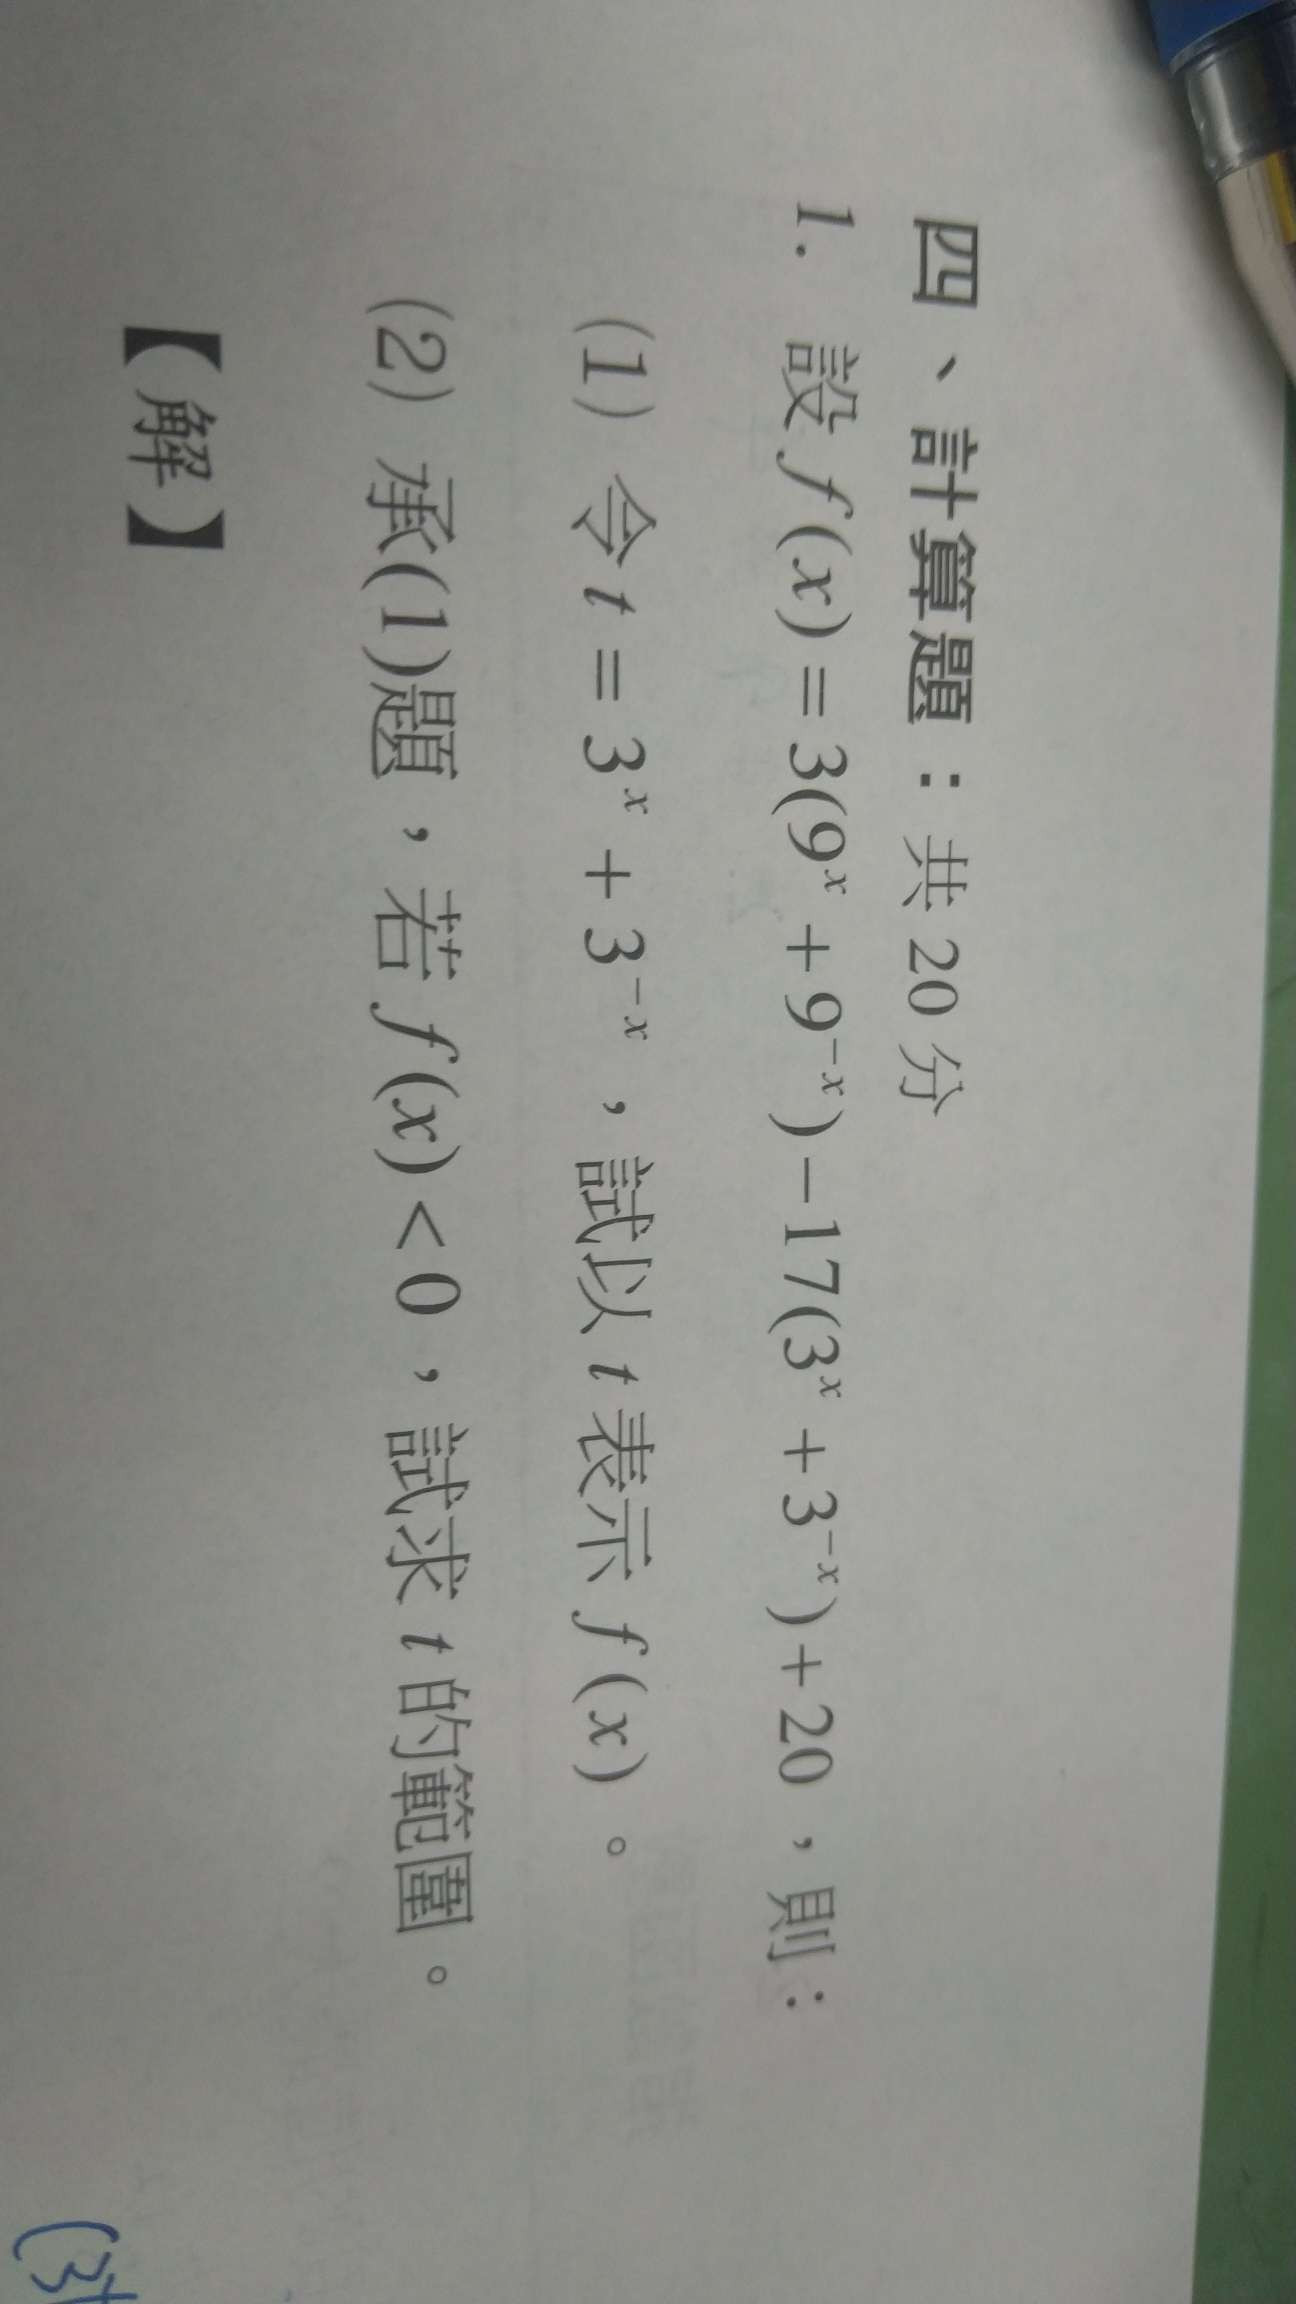 四、計算題：共 20 分
1. 設 f(x) = 3(9^x + 9^{-x}) − 17(3^x + 3^{-x}) + 20，則：
(1) 令 t = 3^x + 3^{-x}，試以 t 表示 f(x)。
(2) 承(1)題，若 f(x) < 0，試求 t 的範圍。
【解】